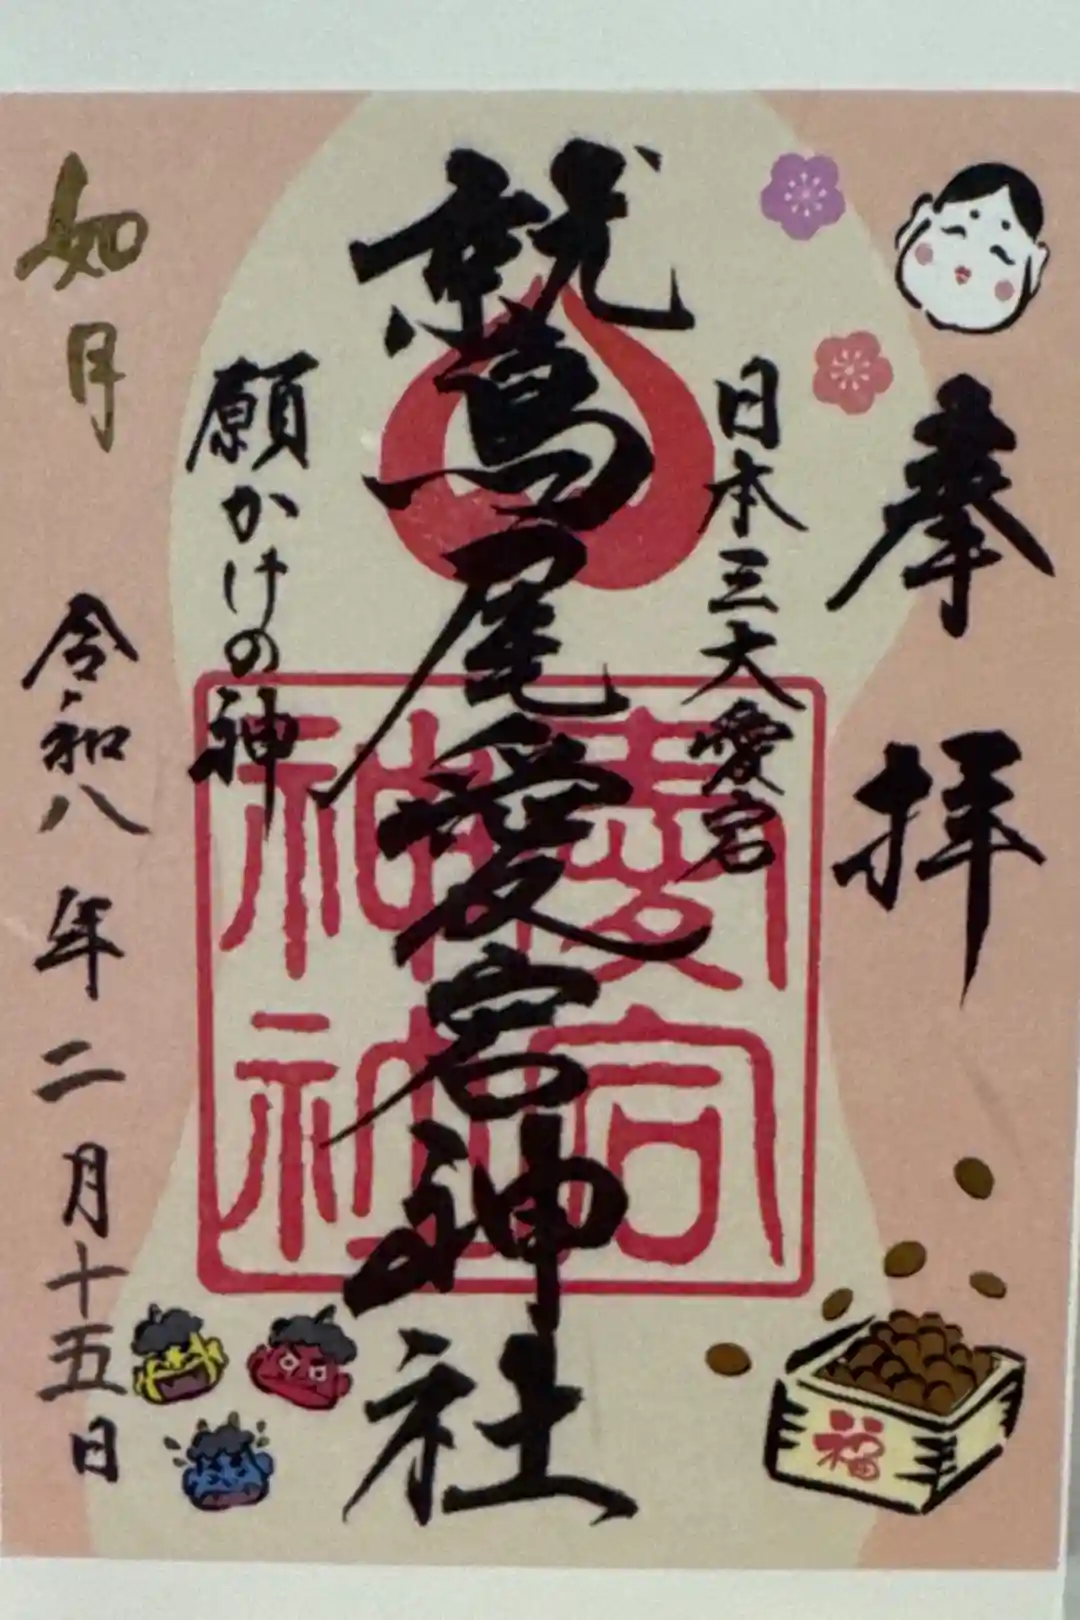 奉拝
日本三大愛宕
鷲尾愛宕神社
願かけの神
如月
令和八年二月十五日
愛宕
神社
福